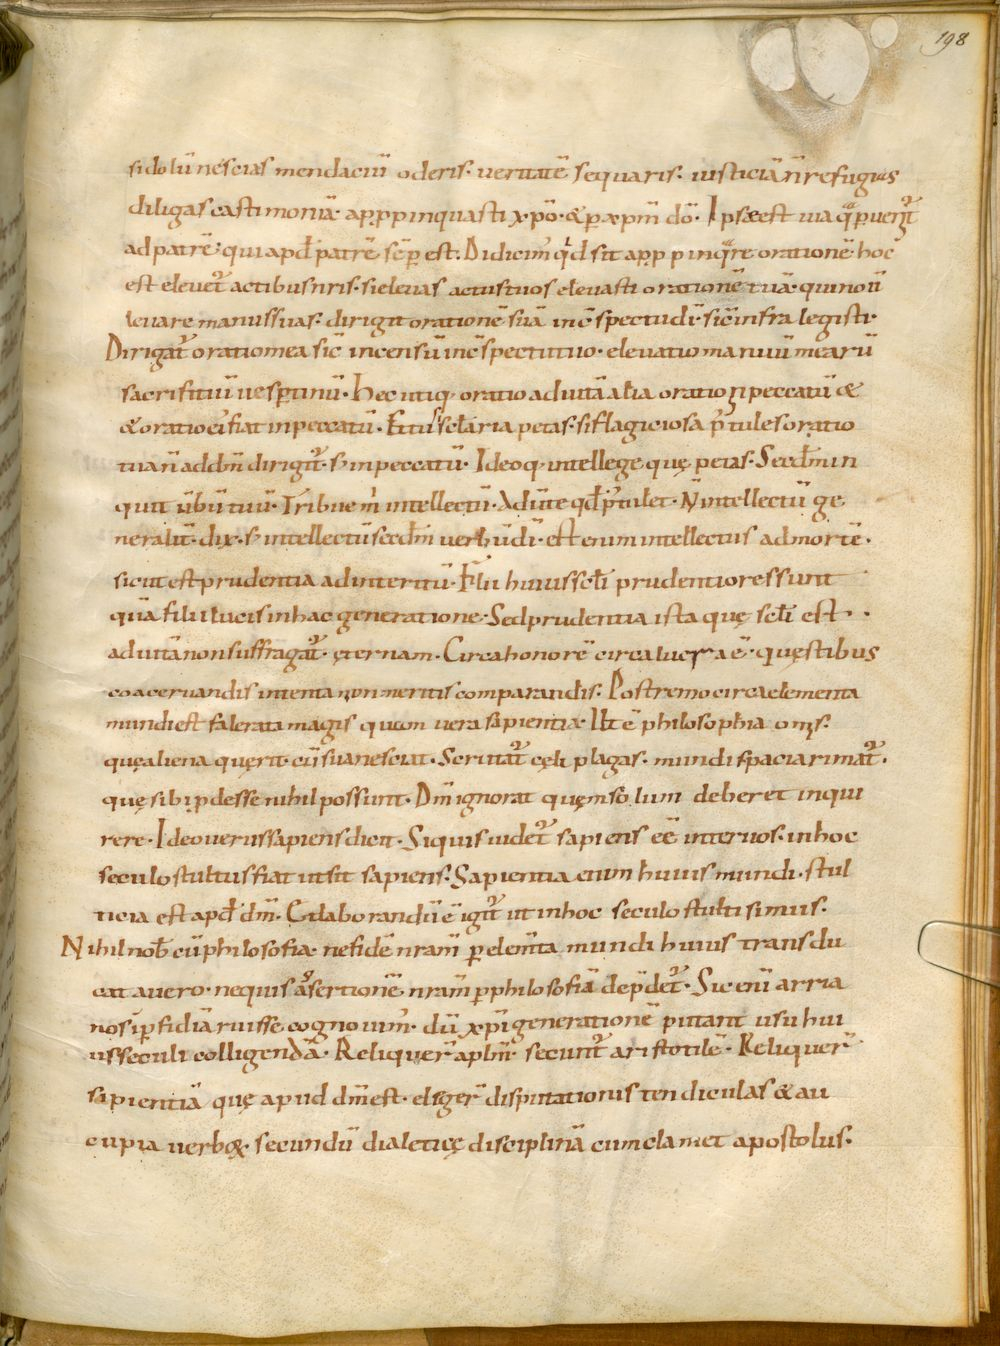 198
si dolū nescias mendaciū oderis. veritatē sequaris. iusticiā n̄ refugias
diligas castimoniā appropinquasti xp̄o. & per xp̄m dō. Ipsa est via qua pervenit᷑
ad patrē. qui apd̄ patrē semp est. Didicim᷒ qd̄ sit appropinquare orationē. hoc
est elevet᷑ actibus nr̄is. si elevas actus tuos elevasti orationē tuā. qui novī
levare manus suas. dirigit orationē suā in c̄spectu dī. sic̄ infra legisti.
Dirigat᷑ oratio mea sic̄ incensū in c̄spectu tuo. elevatio manuū mearū
sacrifitiū vespertinū. Hec utiq, oratio ad vitā alia oratio in peccatū &
& oratio ei᷒ fiat in peccatū. Et tu si sc̄laria petas. si flagiciosa p̄tules oratio
tua n̄ ad dm̄ dirigit᷑. s; in peccatū. Ideoq, intellege quę petas. Scdm̄ in
quit v̄bū tuū. Tribue m̄ intellectū. Adiute qd̄ p̄tulet. N̄ intellectū ge
neralit̄. dix. s; intellectū scdm̄ verbū dī. est enim intellectus ad mortē.
sicut est prudentia ad interitū. Filii huius scłi prudentiores sunt
quā filii lucis in hac generatione. Sed prudentia ista quę scłi est.
ad vitā non suffragat᷑. ęternam. Circa honorē circa lucra ē. quęstibus
coacervandis intenta non meritis comparandis. Postremo circa elementa
mundi est falerata magis quam vera sapientia. Ibi ē philosophia oms.
que aliena quęrit. cū sua nesciat. Scrutat᷑ cęli plagas. mundi spacia rimat᷑.
quę sibi pdesse nihil possunt. Dm̄ ignorat quęm solum deberet inqui
rere. Ideo verus sapiens dicit. Siquis videt᷑ sapiens eē inter vos. in hoc
seculo stultus fiat ut sit sapiens. Sapientia enim huius mundi. stul
ticia est apd̄ dm̄. Elaborandū ē igit᷑ ut in hoc seculo stulti simus.
Nihil nob̄ cū philosofia. ne fidē nr̄am per elem̄ta mundi huius transdu
cat a vero. nequis assertionē nr̄am p philosofiā dep̄det᷑. Sic enī arria
nos ī pfidiā ruisse cognovim᷒. dū xp̄i generationē putant usu hui
us seculi colligendā. Reliquer̄ aplm̄. secunt᷑ aristotilē. Reliquer̄
sapientiā quę apud dm̄ est. eleger̄ disputationis tendiculas & au
cupia verboꝝ. secundū dialeticę disciplinā cum clamet apostolus.